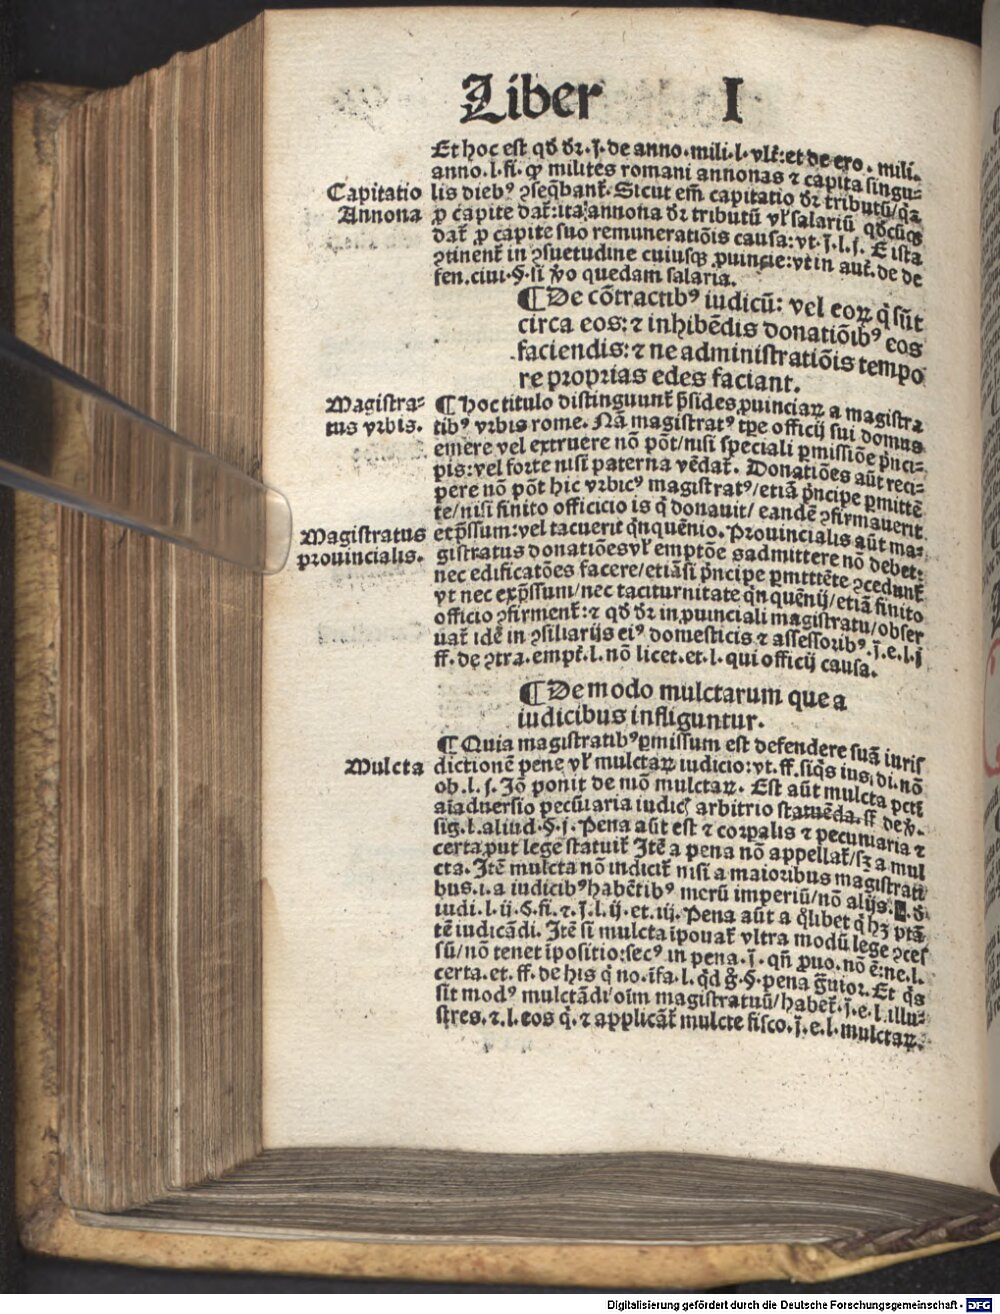 Liber I
Et hoc est qđ dr̄.ī.de anno.mili.l.vlt̄:et de ero.mili.
anno.l.fi.qꝫ milites romani annonas ⁊ capita singu⸗
Capitatio
lis diebꝰ ꝯseq̄bant̄. Sicut em̄ capitatio dr̄ tributū/q̄a
Annona
ꝓ capite dat̄:ita annona dr̄ tributū vl̄ salariū qđcūqꝫ
dat̄ ꝓ capite suo remuneratiōis causa:vt.ī.l.j. Et ista
ꝯtinent̄ in ꝯsuetudine cuiusqꝫ ꝓuincie:vt in aut̄.de de
fen.ciui.§.si v̄o quedam salaria.
¶ De cōtractibꝰ iudicū: vel eoꝝ q̄ sūt
circa eos:⁊ inhibēdis donatiōibꝰ eos
faciendis:⁊ ne administratiōis tempo
re proprias edes faciant.
Magistra⸗
tus vrbis.
¶ Hoc titulo distinguunt̄ p̄sides ꝓuinciaꝝ a magistra
tibꝰ vrbis rome. Nā magistratꝰ tꝑe officij sui domus
emere vel extruere nō pōt/nisi speciali ꝑmissiōe p̄nci⸗
pis:vel forte nisi paterna vēdat̄. Donatiōes aūt reci⸗
pere nō pōt hic vrbicꝰ magistratꝰ/etiā p̄ncipe ꝑmittē
te/nisi finito officicio is q̄ donauit/eandē ꝯfirmauerit
Magistratus
prouincialis.
et p̄ssum:vel tacuerit q̄nquēnio. Prouincialis aūt ma⸗
gistratus donatiōes vl̄ emptōe sadmittere nō debet:
nec edificatōes facere/etiāsi p̄ncipe ꝑmittēte ꝯcedunt̄
vt nec exp̄ssum/nec taciturnitate q̄nquēnij/etiā finito
officio ꝯfirment̄:⁊ qđ dr̄ in ꝓuinciali magistratu/obser
uat̄ idē in ꝯsiliarijs eiꝰ domesticis ⁊ assessoribꝰ.ī.e.l.j
ff.de ꝯtra.empt̄.l.nō licet.et.l.qui officij causa.
¶ De modo mulctarum que a
iudicibus infliguntur.
¶ Quia magistratibꝰ ꝑmissum est defendere suā iuris
Mulcta
dictionē pene vl̄ mulctaꝝ iudicio:vt.ff.siq̄s ius.di.nō
ob.l.j. Jō ponit de mō mulctaꝝ. Est aūt mulcta pcti
aīaduersio pecūiaria iudic̄ arbitrio statuēda.ff de v̄.
sig.l.aliud.§.j. Pena aūt est ⁊ corꝑalis ⁊ pecuniaria ⁊
certa ꝓut lege statuit̄ Jtē a pena nō appellat̄/sꝫ a mul
cta. Jtē mulcta nō indicit̄ nisi a maioribus magistrati
bus.i.a iudicibꝰ habētibꝰ merū imperiū/nō alijs. de
iudi.l.ij.§.fi.⁊.ī.l.ij.et.iij. Pena aūt a q̄libet q̄ hꝫ ptā
tē iudicādi. Jtē si mulcta īponat̄ vltra modū lege ꝯces
sū/nō tenet īpositio:secꝰ in pena.ī.qn̄ ꝓuo.nō ē:ne.l.
certa.et.ff.de his q̄ no.īfa.l.qđ ḡ.§.pena ḡuior. Et q̄s
sit modꝰ mulctādi oīm magistratuū/habet̄.ī.e.l.illu⸗
stres.⁊.l.eos q̄.⁊ applicāt̄ mulcte fisco.ī.e.l.mulctaꝝ.
Digitalisierung gefördert durch die Deutsche Forschungsgemeinschaft - DFG